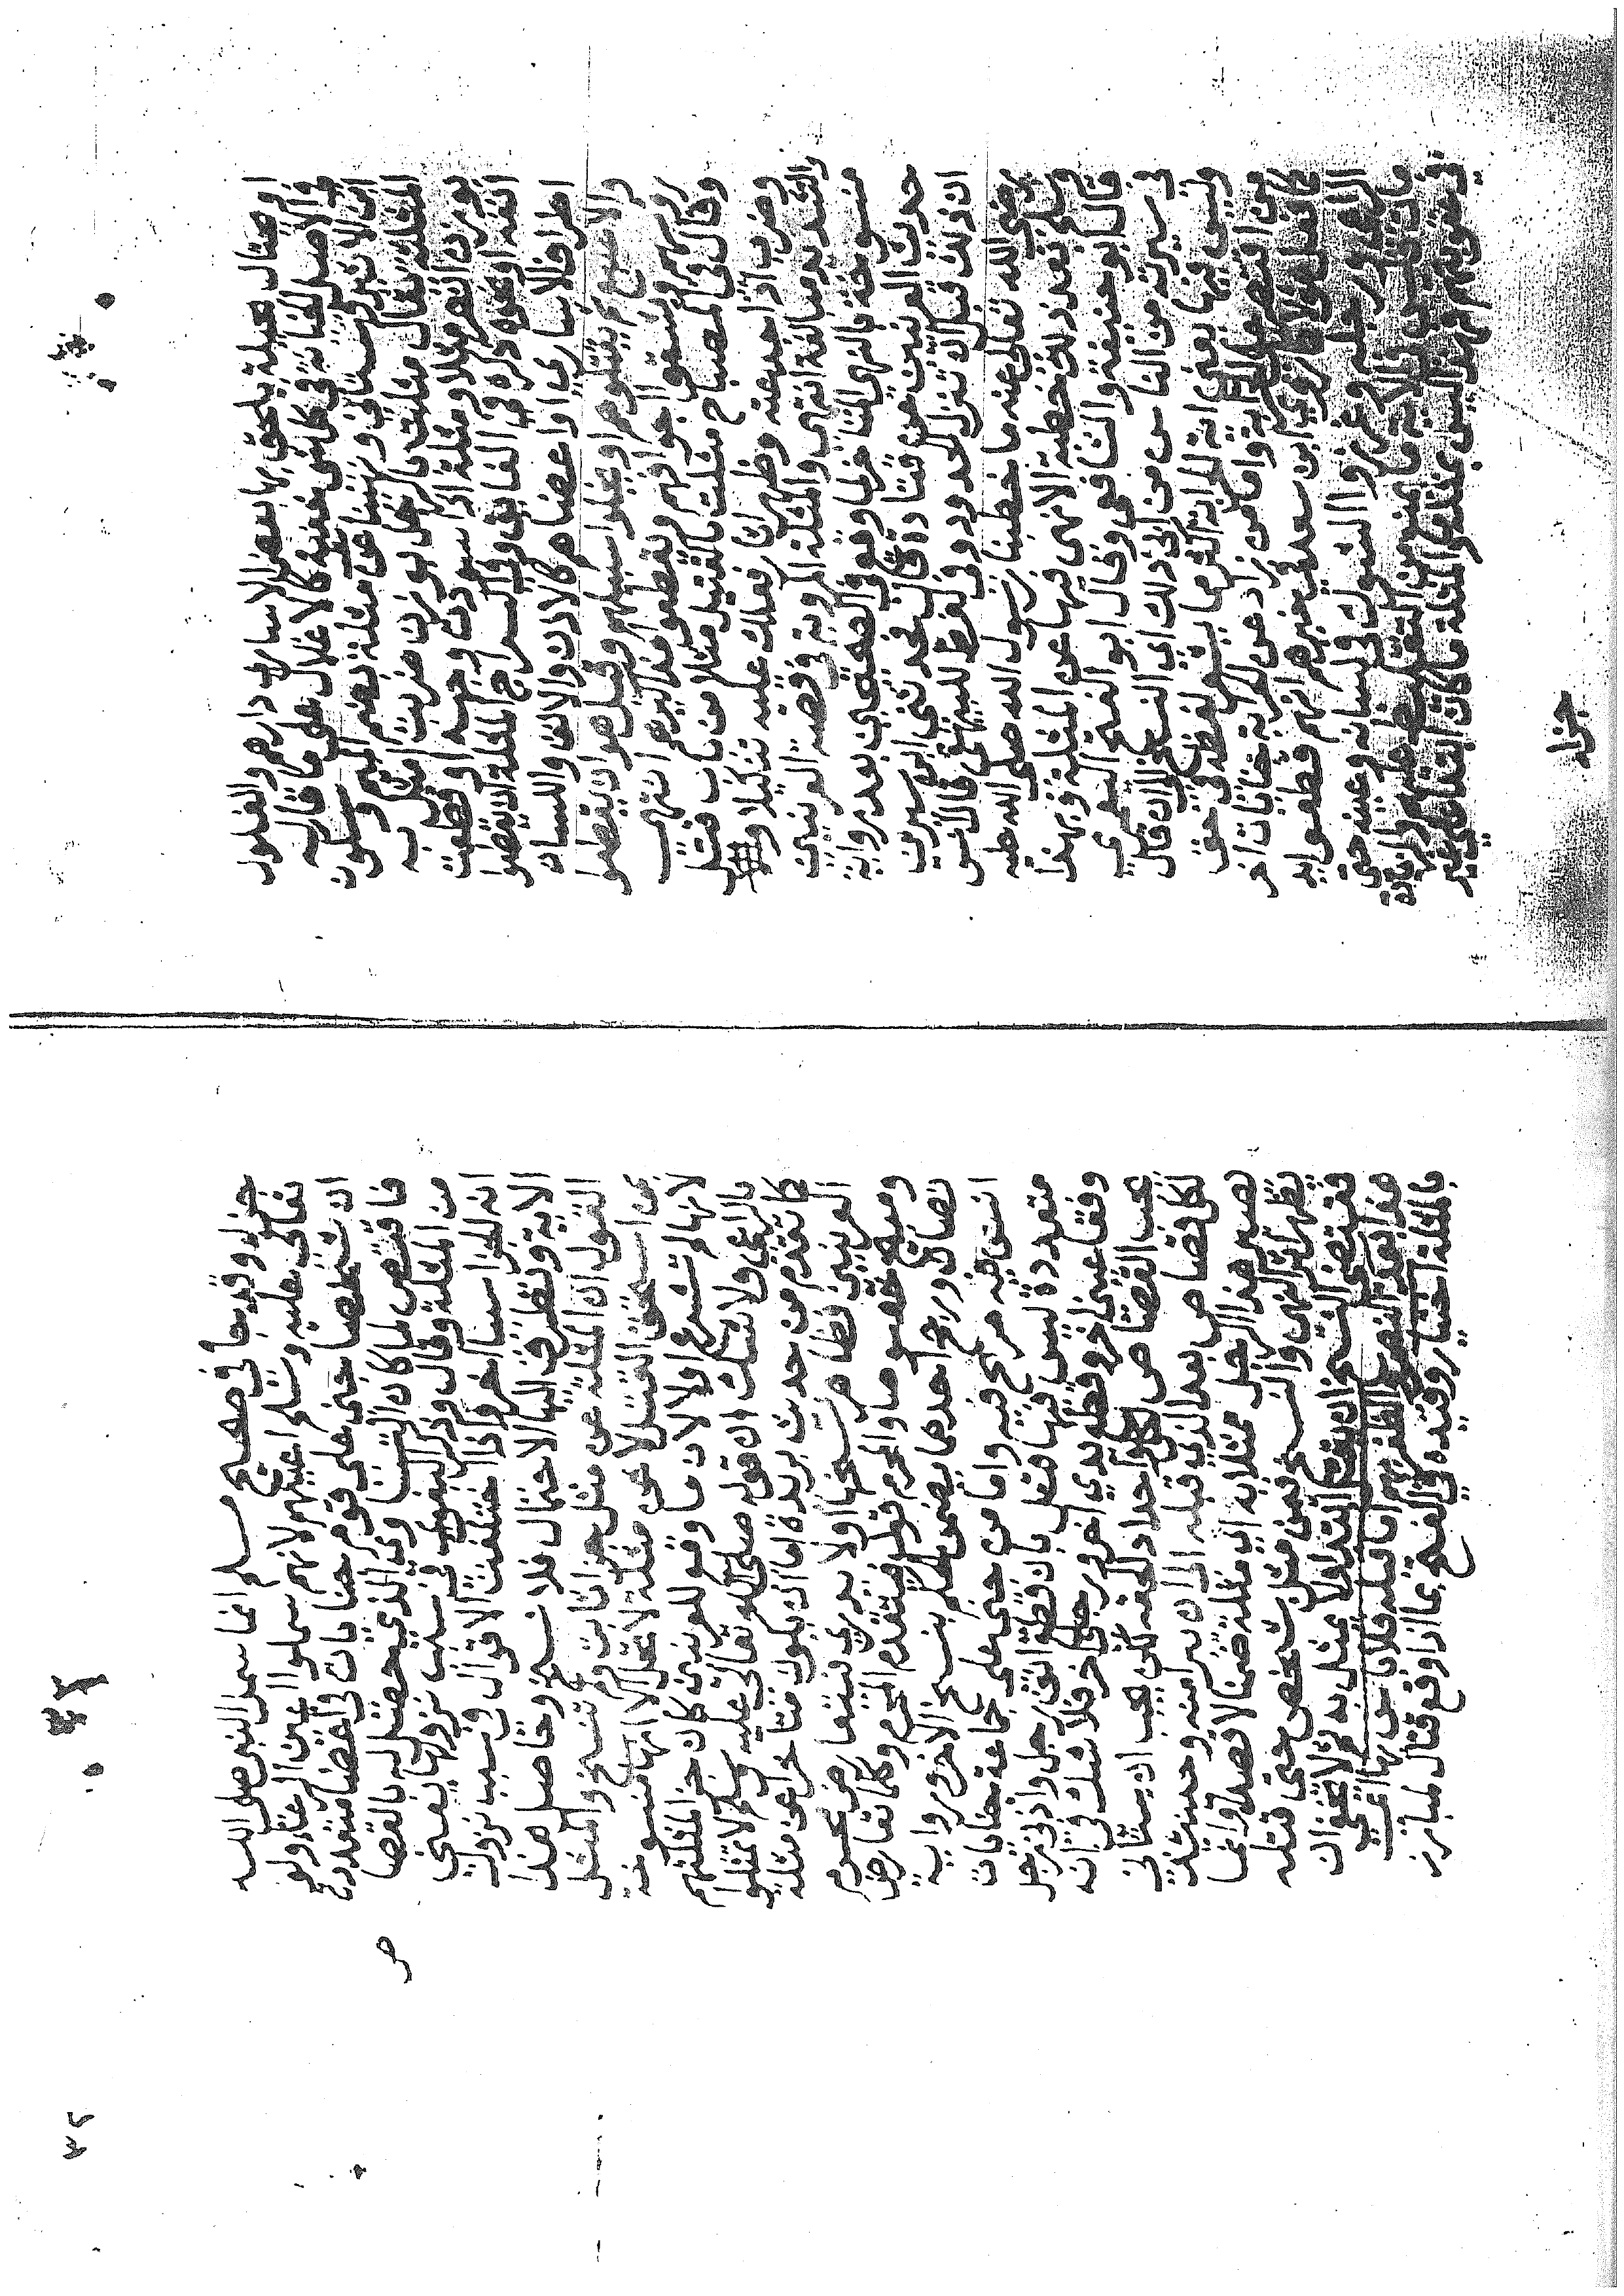 او محتال بحيلة يلحق بها بعض الاسارى دارهم والغلول
في الاصل الخيانة في كل شي خفية كالاغلال على ما قاله
ابن الاثير وسياتي ونهينا عن مثلة بضم الميم وسكون
المثلثة يقال مثلت بالرجل بوزن ضربت امثل به
بوزن انصر مثلا ومثلة اذا سودت وجهه او قطعت
انفه او نحوه ذكره في الفائق وفي السراج المثلة ان يقطعوا
اطراف الاسارى او اعضاهم كالاذن والانف واللسان
والاصبع ثم يقتلوهم او يخلوا سبيلهم وقيل هو ان يقطعوا
روسهم ويشقوا اجوافهم ويقطعوا مذاكيرهم انتهى
وقال في المصباح مثلت بالقتيل مثلا من باب قتل
وضرب اذا جدعته وظهر اثار فعلك عليه تنكيلا
والتشديد مبالغة انتهى والمثلة المروية في قصة العرنيين
منسوخة بالنهي المتاخر لما وقع في الصحيحين بعد رواية
حديث العرنيين عن قتادة قال فحدثني ابن سيرين
ان ذلك قبل ان تنزل الحدود وفي لفظ للبيهقي قال انس
رضي الله تعالى عنه ما خطبنا رسول الله صلى الله عليه
وسلم بعد ذلك خطبة الا نهى فيها عن المثلة وبهذا
قال ابو حنيفة والشافعي وقال ابو الفتح اليعمري
في سيرته من الناس من ابى ذلك اي النسخ الى ان قال
وليس فيها يعني اية الحرابة اكثر مما يشعر لفظه في حق
من اقتصر على الحرابة واما من زاد عن الحرابة جنايات اخر
كما فعل هؤلاء كما روى ابن سعد في خبرهم انهم قطعوا يد
الراعي ورجله وغرزوا الشوك في لسانه وعينه حتى
مات فليس في الاية ما يمنع من التغليظ عليهم والزيادة
في عقوبتهم فهذا ليس بمثلة والمثلة ما كان ابتداء على غير
جزاء
جزاء وقد جاء في صحيح مسلم انما سمل النبي صلى الله
تعالى عليه وسلم اعينهم لانهم سملوا اعين الرعاء ولو
ان شخصا جنى على قوم جنايات في اعضا متعددة
فاقتص لما كان الذي حصل له بالقصا
من المثلة وقال وذكر البغوي في سبب نزولها يعني
اخر واذا اختلفت الاقوال في سبب نزول
الاية وتطرق اليها الاحتمال فلا نسخ وحاصل هذا
القول ان المثلة عن مثل جزاء ثابت لم تنسخ والمثل
بمن استحق القتل لا عن مثلة لا تحل لا انها منسوخة
لانها لم تشرع اولا لان ما وقع للعرنيين كان جزا لمثلتهم
بالراعي ولا شك ان قوله صلى الله تعالى عليه وسلم لا تمثلوا
كما تقدم من حديث بريدة اما ان يكون متاخرا عن مثلة
العرنيين فظاهر نسخها او لا يدرى فيتعارض محرم
ومبيح خصوصا والمحرم قول فيتقدم المحرم وكلما تعارض
نصان ورجح احدهما يضمن الحكم بنسخ الاخر ورواية
انس فيه صريح فيه واما من جنى على جماعة جنايات
متعددة ليس فيها قتل بان قطع انف رجل واذني رجل
وفقا عيني اخر وقطع يدي اخر ورجلي اخر فلا شك في انه
يجب القصاص لكل واحد اداء لحقه لكن يجب ان يستاني
لكل قصاص بعد الذي قبله الى ان يبرا منه وحينئذ
يصير هذا الرجل ممثلا به اي مثلة ضمنا لا قصدا وانما
يظهر اثر النهي والنسخ فيمن مثل بشخص حتى قتله
فمقتضى النسخ ان يقتل به اولا ولا يمثل به ثم لا يخفى ان
هذا بعد الظفر والنصر اما قبله فلا باس بها انتهى
بالمثلة اختيار وقيده في الفتح بما اذا وقع قتال لمبارز
ص
٣٢